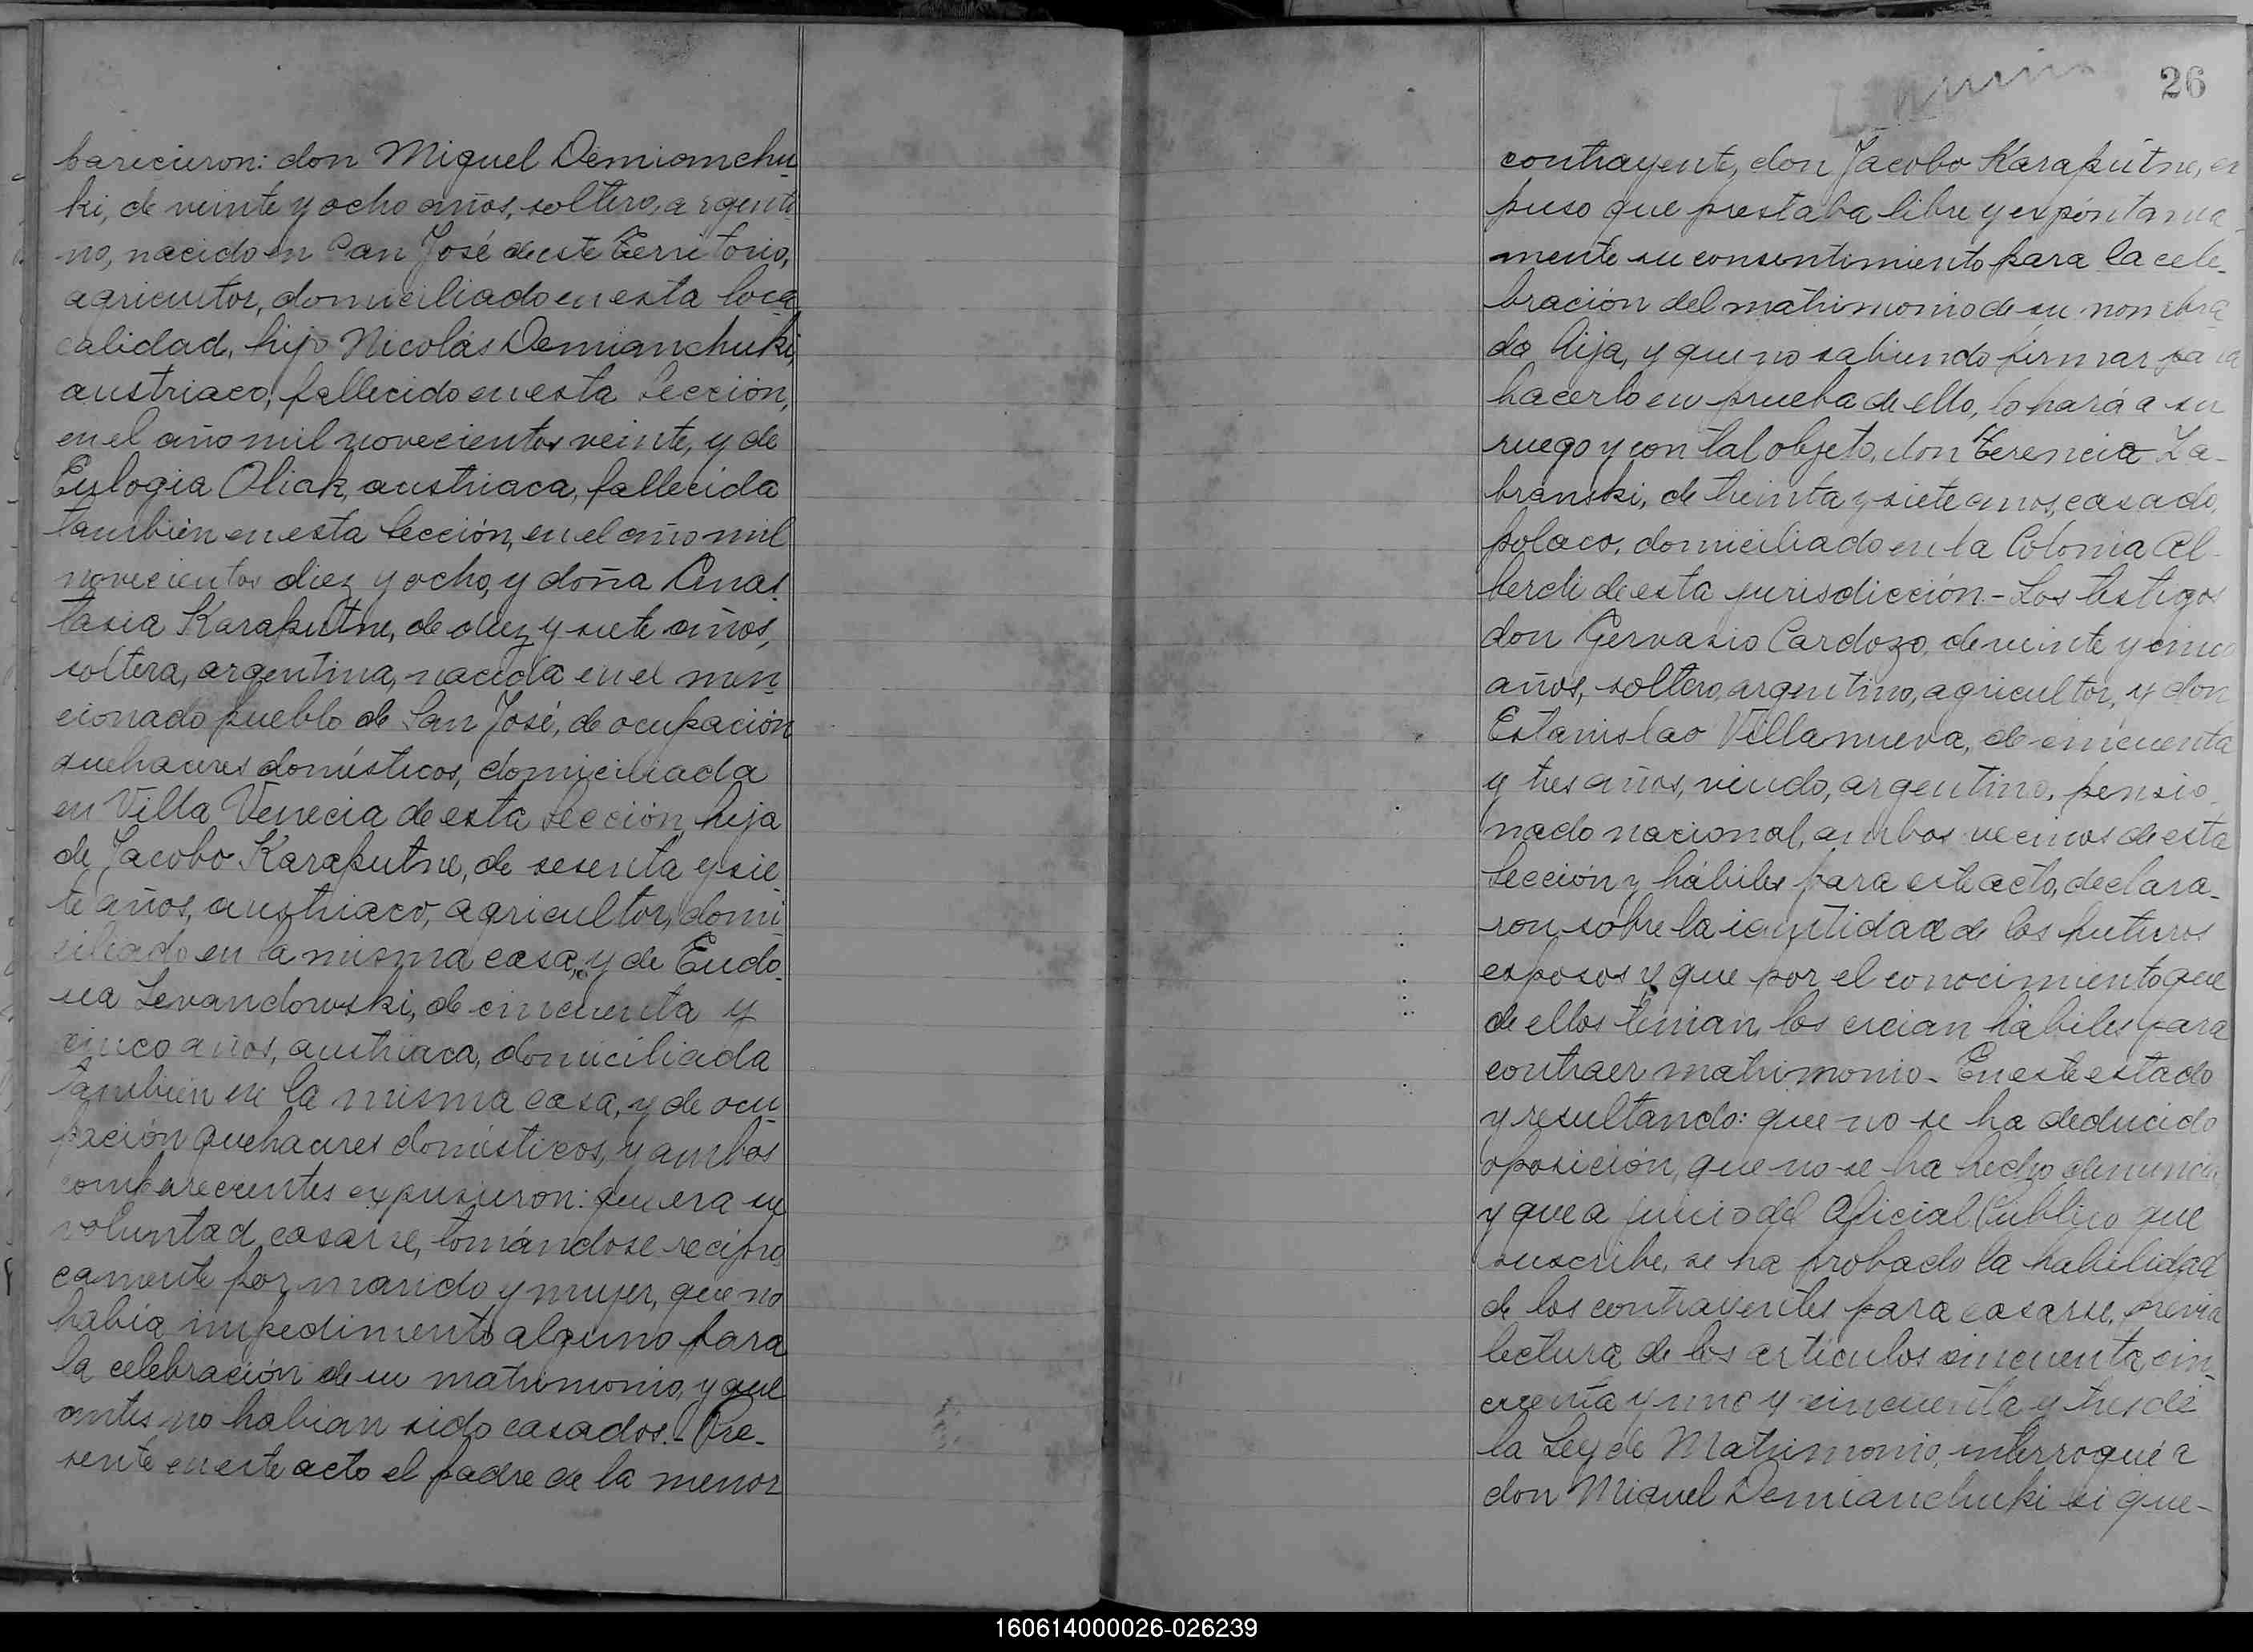 parecieron: don Miguel Demianchu
ki, de veinte y ocho años, soltero, argenti
no, nacido en San José de este Territorio,
agricultor, domiciliado en esta loca
calidad, hijo Nicolás Demianchuki,
austriaco, fallecido en esta Sección,
en el año mil novecientos veinte, y de
Eulogia Oliak, austriaca, fallecida
también en esta Sección, en el año mil
novecientos diez y ocho, y doña Anas
tasia Karaputne, de diez y siete años,
soltera, argentina, nacida en el men
cionado pueblo de San José, de ocupación
quehaceres domésticos, domiciliada
en Villa Venecia de esta Sección, hija
de Jacobo Karaputne, de sesenta y sie
te años, austriaco, agricultor, domi
siliado en la misma casa, y de Eudo
sia Levandowski, de cincuenta y
cinco años, austriaca, domiciliada
también en la misma casa, y de ocu
pación quehaceres domésticos, y ambos
comparecientes expusieron: que era su
voluntad casarse, tomándose recipro
camente por marido y mujer, que no
había impedimento alguno para
la celebración de su matrimonio, y que
antes no habian sido casados.- Pre-
sente en este acto el padre de la menor
26
contrayente, don Jacobo Karaputne, ex
puso que prestaba libre y expóntanea
mente su consentimiento para la cele-
bración del matrimonio de su nombra
da hija, y que no sabiendo firmar para
hacerlo en prueba de ello, lo hará a su
ruego y con tal objeto, don Terencia Za-
branski, de treinta y siete años, casado,
polaco, domiciliado en la Colonia Al-
berdi de esta jurisdicción.- Los testigos
don Gervasio Cardozo, de veinte y cinco
años, soltero, argentino, agricultor, y don
Estanislao Villanueva, de cincuenta
y tres años, viudo, argentino, pensio-
nado nacional, ambos vecinos de esta
Sección y hábiles para este acto, declara-
ron sobre la identidad de los futuros
esposos y que por el conocimiento que
de ellos tenian, los creian hábiles para
contraer matrimonio.- En este estado
y resultando: que no se ha deducido
oposición, que no se ha hecho denuncia
y que a juicio del Oficial Público que
suscribe, se ha probado la habilidad
de los contrayentes para casarse, previa
lectura de los artículos cincuenta, cin-
cuenta y uno y cincuenta y tres de
la Ley de Matrimonio, interrogué a
don Miguel Demianchuki si que-
160614000026-026239